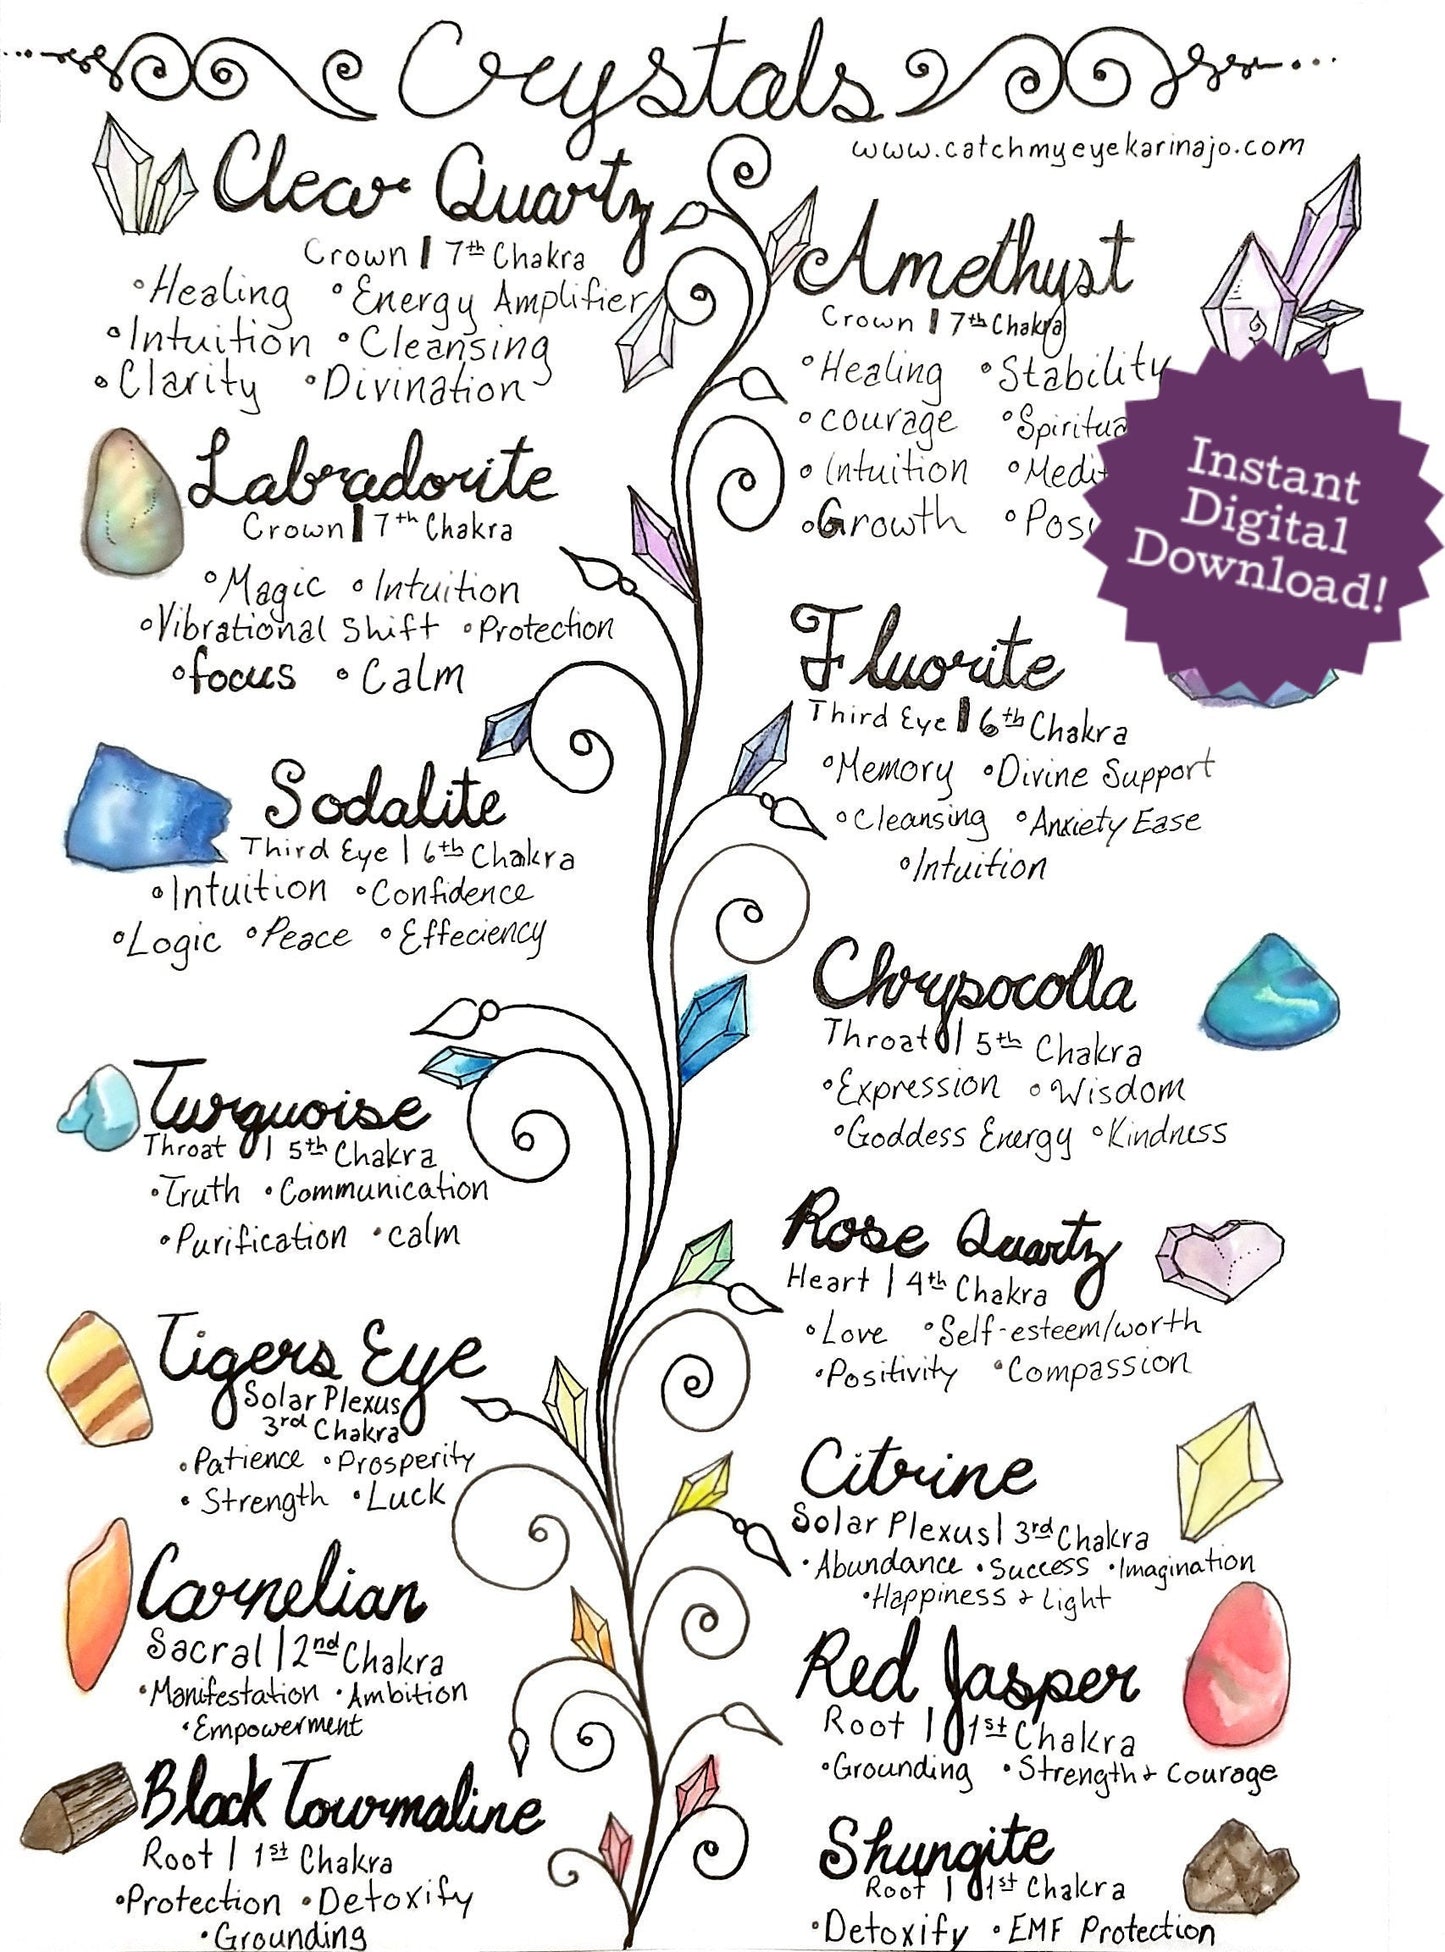 Crystals
www.catchmyeyekarinajo.com
Clear Quartz
Crown | 7th Chakra
•Healing •Energy Amplifier
•Intuition •Cleansing
•Clarity •Divination
Labradorite
Crown | 7th Chakra
•Magic •Intuition
•Vibrational Shift •Protection
•focus •Calm
Sodalite
Third Eye | 6th Chakra
•Intuition •Confidence
•Logic •Peace •Effeciency
Turquoise
Throat | 5th Chakra
•Truth •Communication
•Purification •calm
Tigers Eye
Solar Plexus
3rd Chakra
•Patience •Prosperity
•Strength •Luck
Carnelian
Sacral | 2nd Chakra
•Manifestation •Ambition
•Empowerment
Black Tourmaline
Root | 1st Chakra
•Protection •Detoxify
•Grounding
Amethyst
Crown | 7th Chakra
•Healing •Stability
•courage
•Intuition
•Growth
Instant
Digital
Download!
Fluorite
Third Eye | 6th Chakra
•Memory •Divine Support
•Cleansing •Anxiety Ease
•Intuition
Chrysocolla
Throat | 5th Chakra
•Expression •Wisdom
•Goddess Energy •Kindness
Rose Quartz
Heart | 4th Chakra
•Love •Self-esteem/worth
•Positivity •Compassion
Citrine
Solar Plexus | 3rd Chakra
•Abundance •Success •Imagination
•Happiness + Light
Red Jasper
Root | 1st Chakra
•Grounding •Strength + Courage
Shungite
Root | 1st Chakra
•Detoxify •EMF Protection